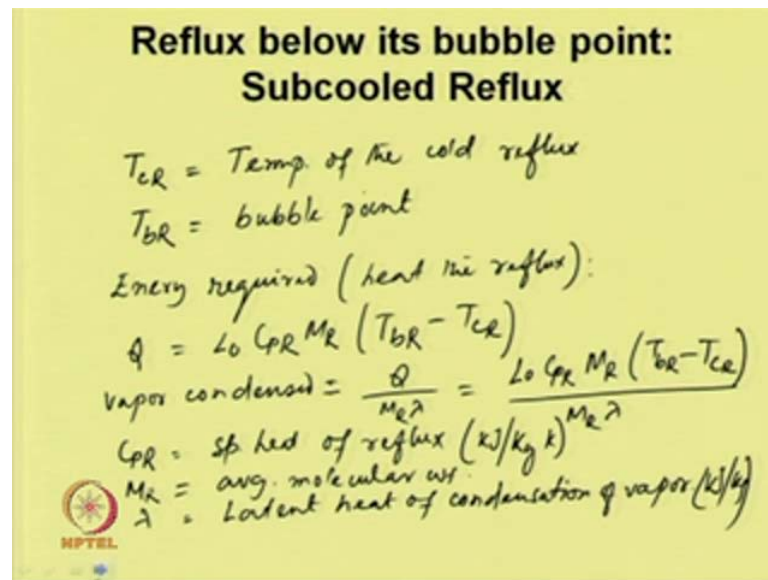 Reflux below its bubble point:
Subcooled Reflux
TcR = Temp. of the cold reflux
TbR = bubble point
Enery required (heat the reflux):
Q = L0 CPR MR (TbR - TcR)
vapor condensed = Q / MR λ = L0 CPR MR (TbR - TcR) / MR λ
CPR = sp. heat of reflux (kJ/kg K)
MR = avg. molecular wt.
λ = Latent heat of condensation of vapor (kJ/kg)
NPTEL